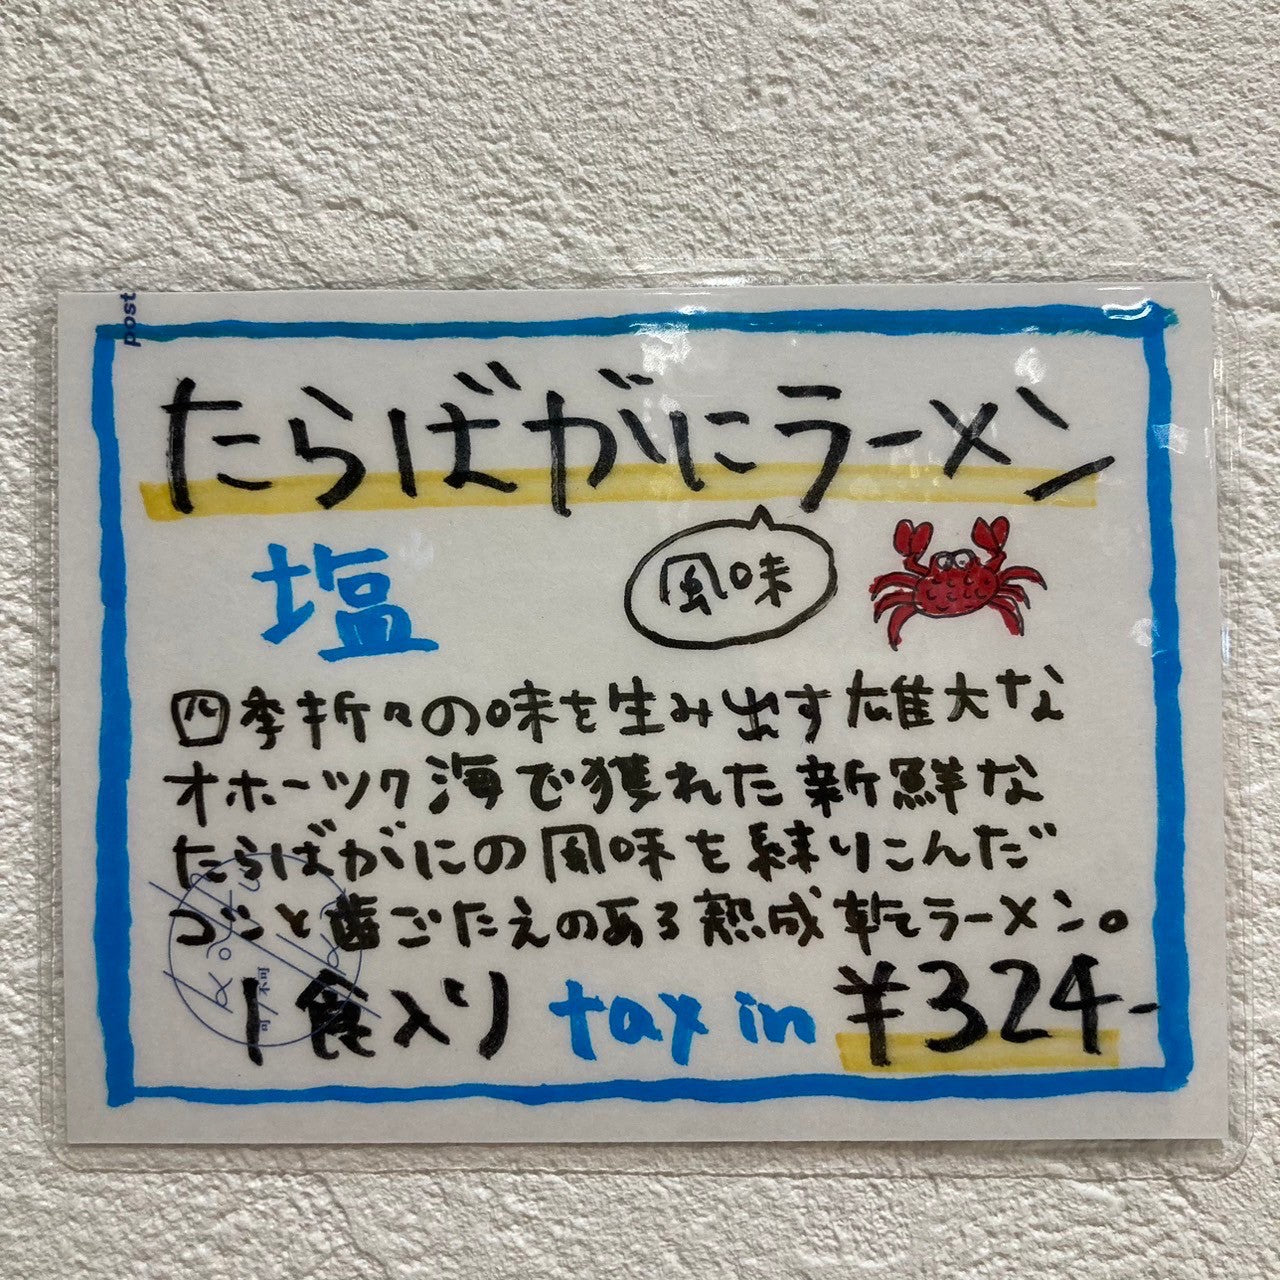 post
たらばがにラーメン
塩
風味
四季折々の味を生み出す雄大な
オホーツク海で獲れた新鮮な
たらばがにの風味を練りこんだ
コシと歯ごたえのある熟成乾ラーメン。
1食入り tax in ¥324-